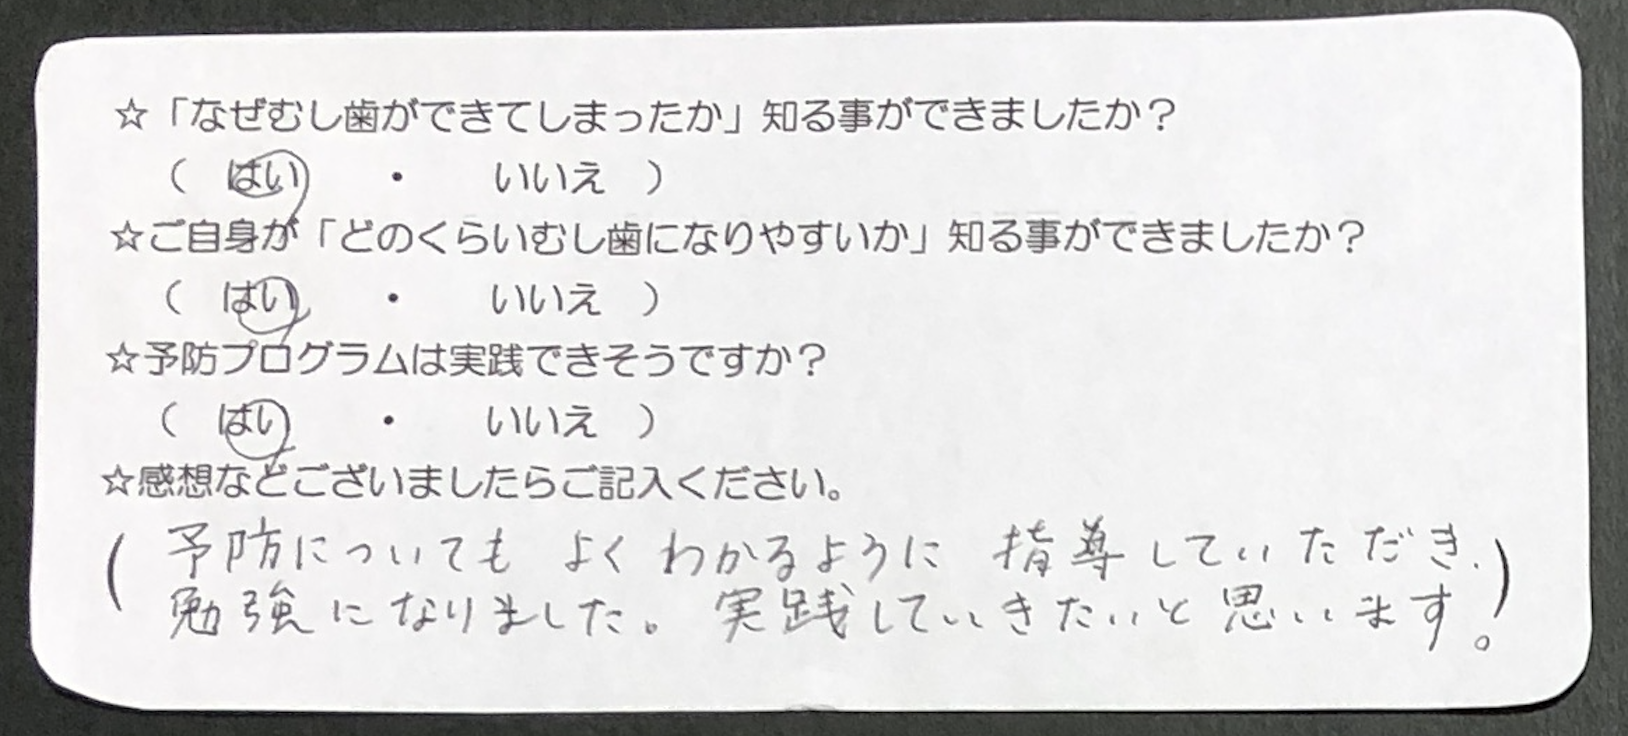 ☆「なぜむし歯ができてしまったか」知る事ができましたか？
（　はい　・　いいえ　）
☆ご自身が「どのくらいむし歯になりやすいか」知る事ができましたか？
（　はい　・　いいえ　）
☆予防プログラムは実践できそうですか？
（　はい　・　いいえ　）
☆感想などございましたらご記入ください。
（予防についても よくわかるように 指導していただき、
勉強になりました。実践していきたいと思います。）